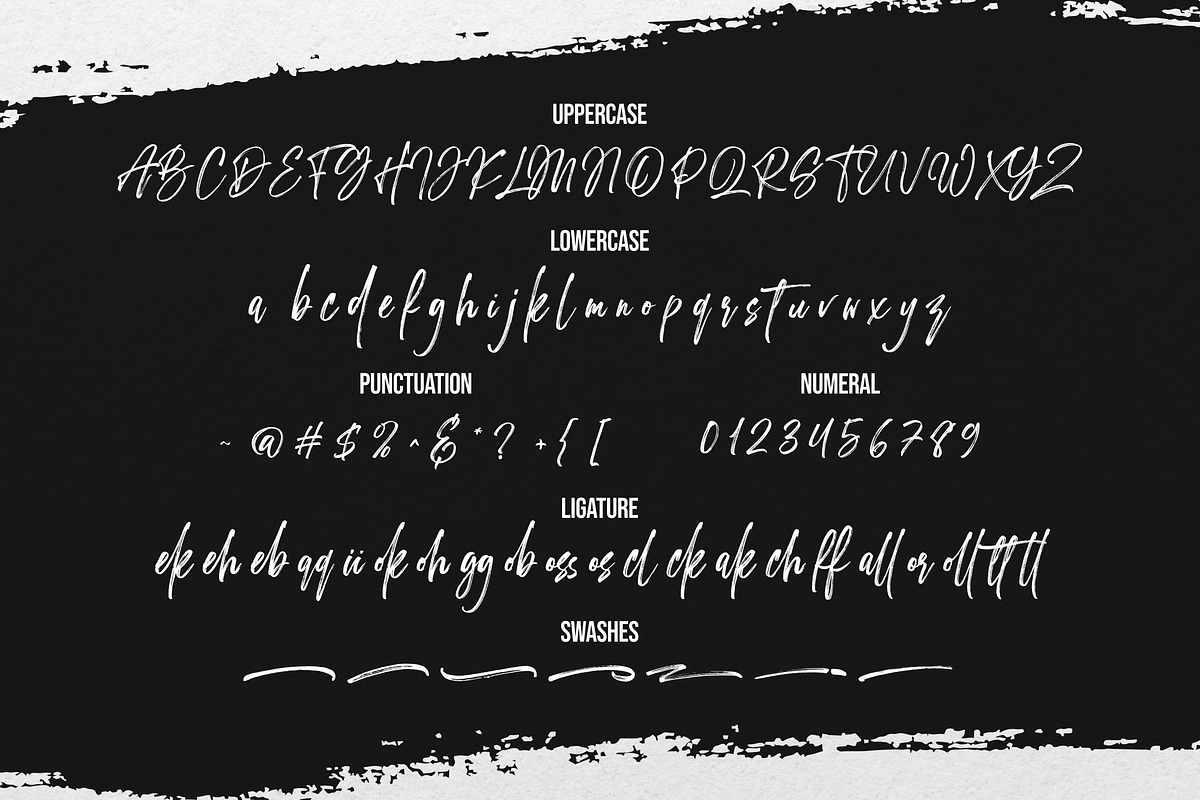 UPPERCASE
ABCDEFGHIJKLMNOPQRSTUVWXYZ
LOWERCASE
a bcdefghijklmnopqrstuvwxyz
PUNCTUATION NUMERAL
~ @ # $ % ^ & * ? + { [ 0123456789
LIGATURE
ek eh eb qq ii ok oh gg ob oss os cl ck ak ch ff all or oll tt tl
SWASHES